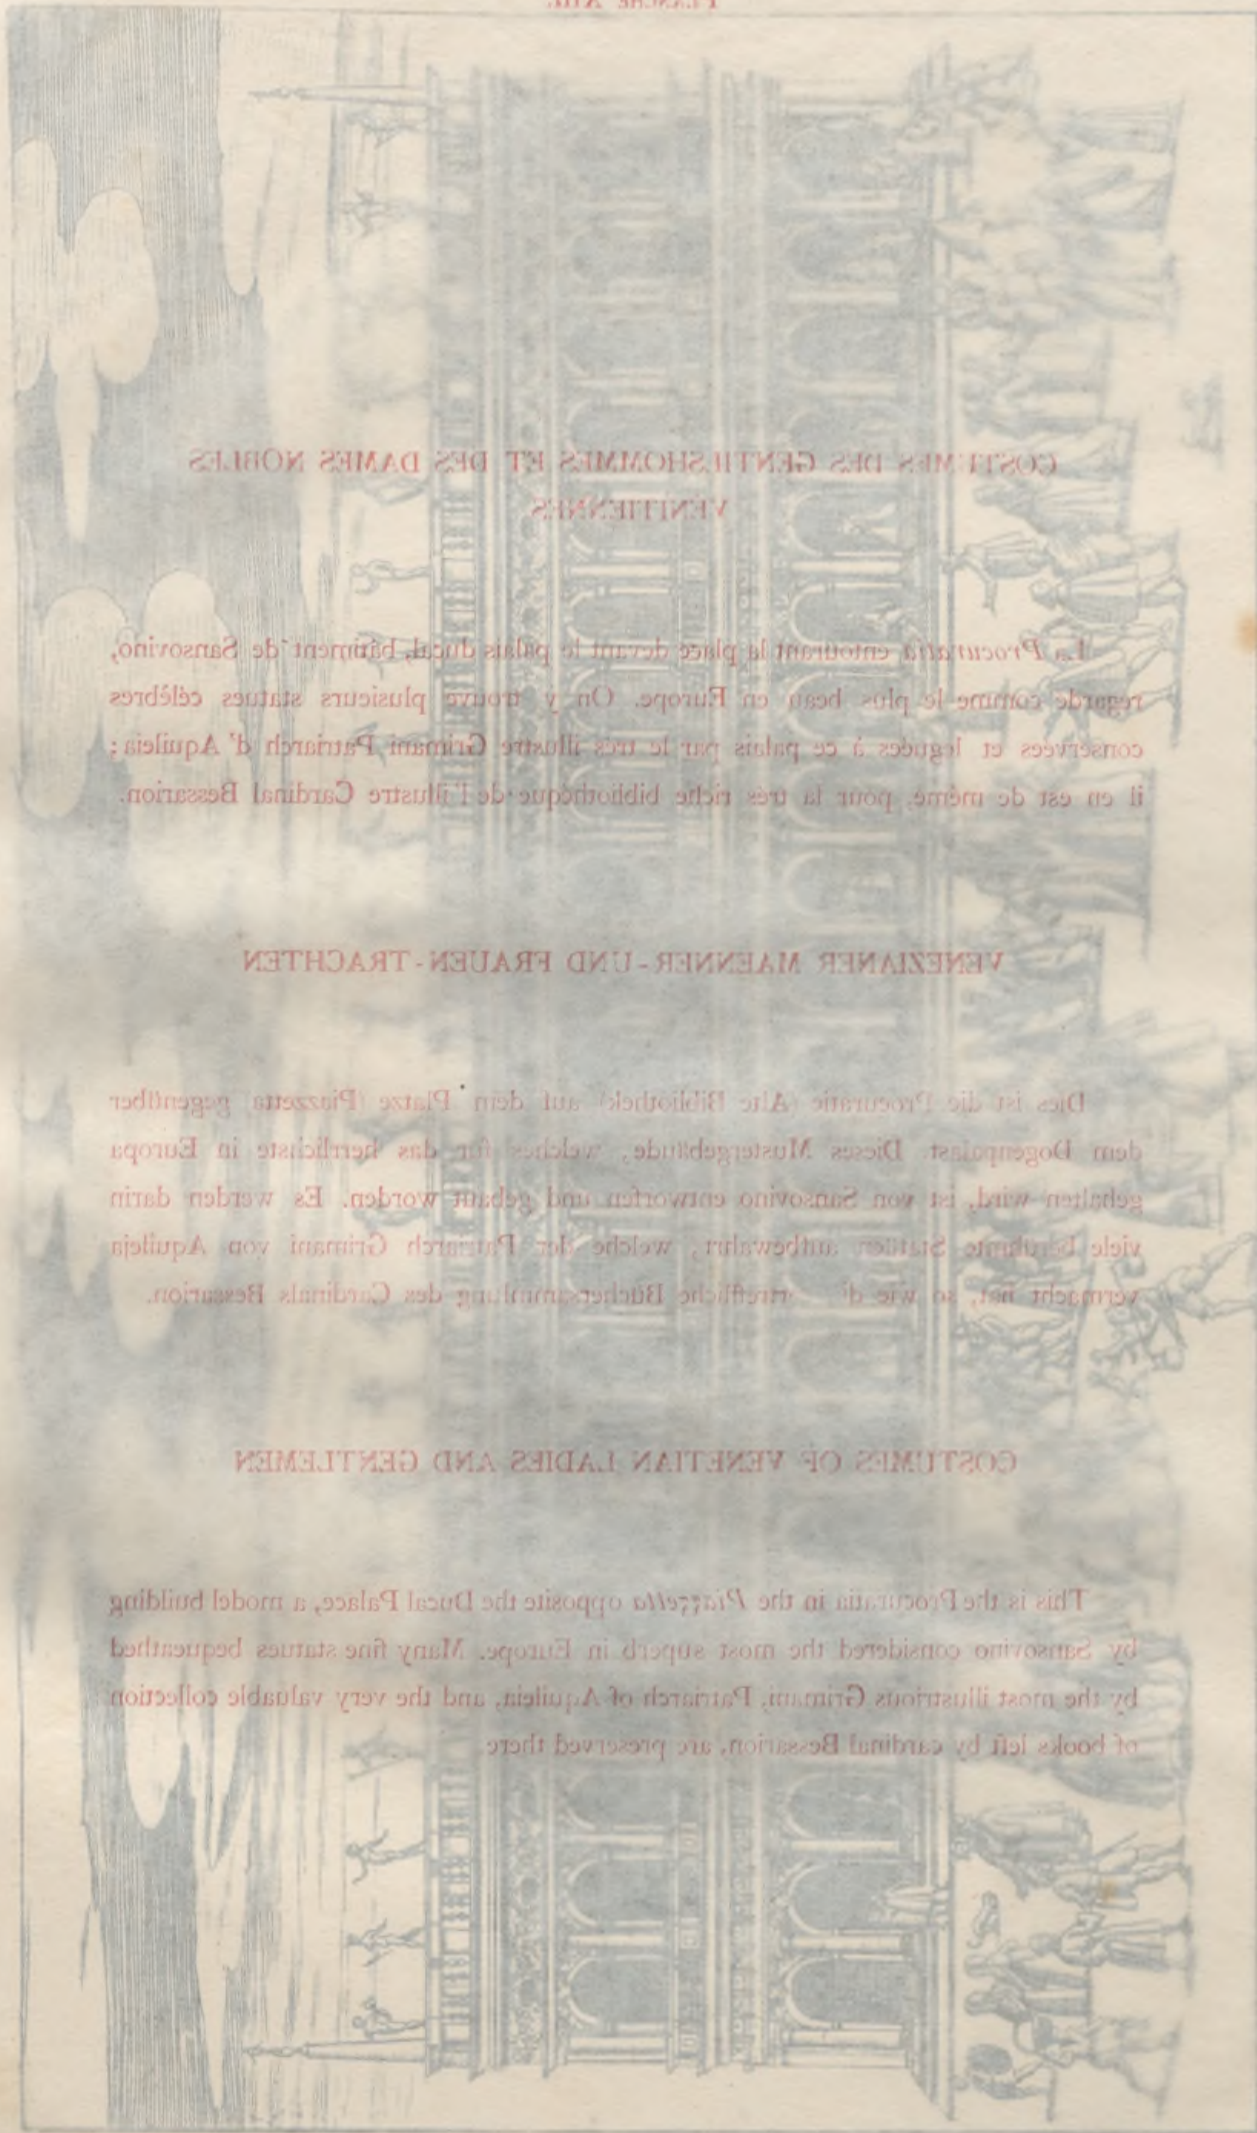 PLANCHE XIII.
COSTUMES DES GENTILSHOMMES ET DES DAMES NOBLES
VÉNITIENNES
La Procuratia entourant la place devant le palais ducal, bâtiment de Sansovino,
regardé comme le plus beau en Europe. On y trouve plusieurs statues célèbres
conservées et leguées à ce palais par le trés illustre Grimani Patriarch d' Aquileia;
il en est de même, pour la trés riche bibliothéque de l'illustre Cardinal Bessarion.
VENEZIANER MAENNER-UND FRAUEN-TRACHTEN
Dies ist die Procuratie (Alte Bibliothek) auf dem Platze (Piazzetta) gegenüber
dem Dogenpalast. Dieses Mustergebäude, welches für das herrlichste in Europa
gehalten wird, ist von Sansovino entworfen und gebaut worden. Es werden darin
viele berühmte Statuen aufbewahrt, welche der Patriarch Grimani von Aquileja
vermacht hat, so wie die vortreffliche Büchersammlung des Cardinals Bessarion.
COSTUMES OF VENETIAN LADIES AND GENTLEMEN
This is the Procuratia in the Piazzetta opposite the Ducal Palace, a model building
by Sansovino considered the most superb in Europe. Many fine statues bequeathed
by the most illustrious Grimani, Patriarch of Aquileia, and the very valuable collection
of books left by cardinal Bessarion, are preserved there.